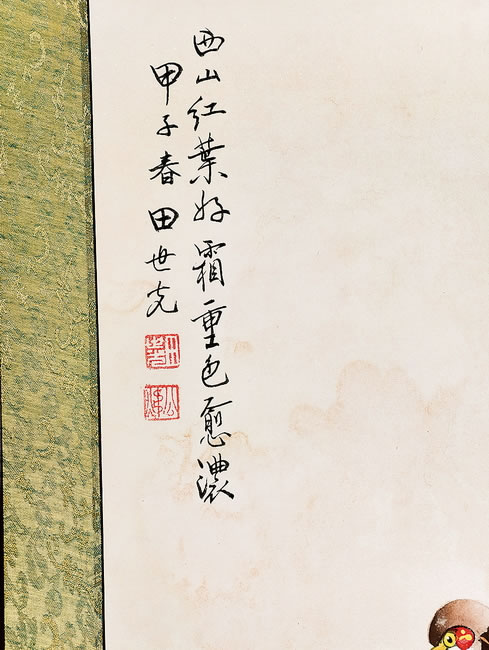 西山红葉好霜重色愈濃
甲子春田世光